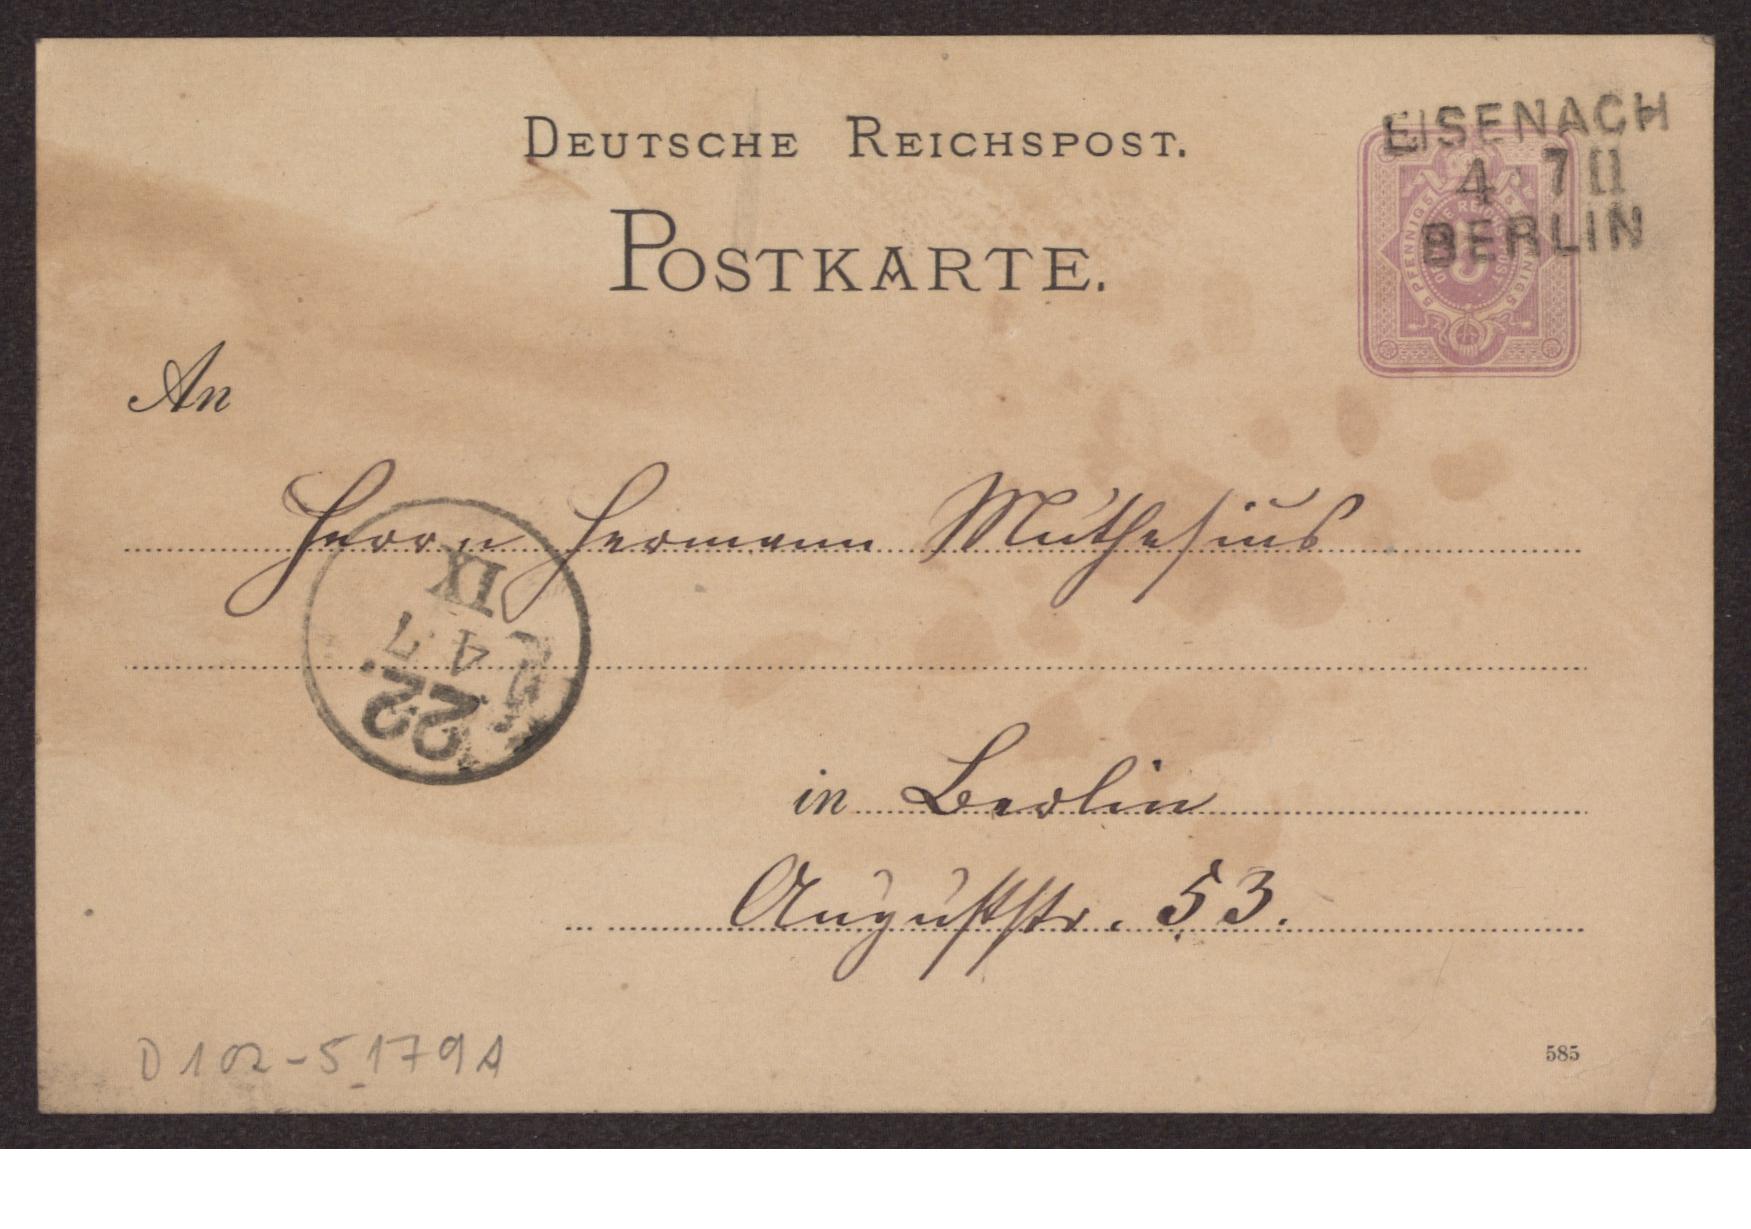 DEUTSCHE REICHSPOST.
POSTKARTE.
EISENACH
4 7 II
BERLIN
An
Herrn Hermann Muthesius
IX
4 7
22.
in Berlin
Auguststr. 53.
D 102-5179A
585